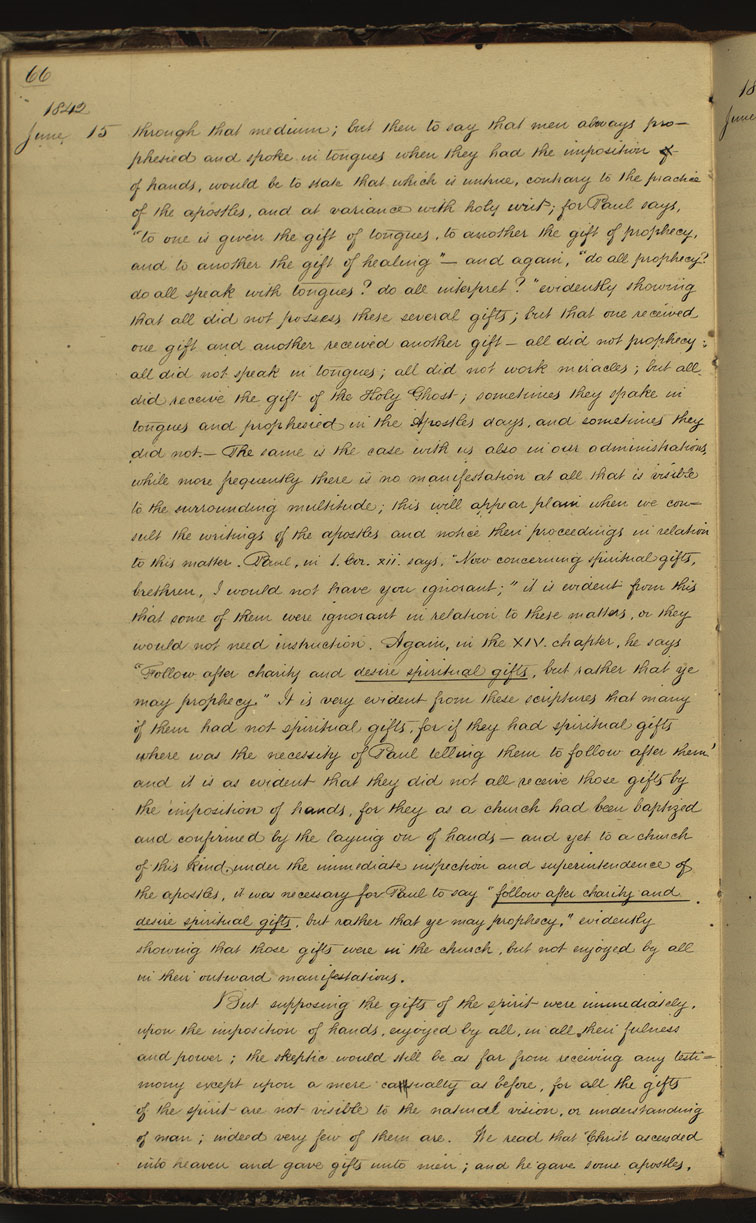 66
1842
June 15 through that medium; but then to say that men always pro-
phesied and spoke in tongues when they had the imposition of
of hands, would be to state that which is untrue, contrary to the practice
of the apostles, and at variance with holy writ; for Paul says,
"to one is given the gift of tongues, to another the gift of prophecy,
and to another the gift of healing"— and again, "do all prophecy?
do all speak with tongues? do all interpret?" evidently showing
that all did not possess these several gifts; but that one received
one gift and another received another gift — all did not prophecy;
all did not speak in tongues; all did not work miracles; but all
did receive the gift of the Holy Ghost; sometimes they spake in
tongues and prophesied in the Apostles days, and sometimes they
did not.— The same is the case with us also in our administrations,
while more frequently there is no manifestation at all that is visible
to the surrounding multitude; this will appear plain when we con-
sult the writings of the apostles and notice their proceedings in relation
to this matter. Paul, in 1. Cor. xii. says, "Now concerning spiritual gifts,
brethren, I would not have you ignorant;" it is evident from this
that some of them were ignorant in relation to these matters, or they
would not need instruction. Again, in the XIV. chapter, he says
"Follow after charity and desire spiritual gifts, but rather that ye
may prophecy." It is very evident from these scriptures that many
of them had not spiritual gifts, for if they had spiritual gifts
where was the necessity of Paul telling them to follow after them?
and it is as evident that they did not all receive those gifts by
the imposition of hands, for they as a church had been baptized
and confirmed by the laying on of hands — and yet to a church
of this kind, under the immediate inspection and superintendence of
the apostles, it was necessary for Paul to say "follow after charity and
desire spiritual gifts, but rather that ye may prophecy," evidently
showing that those gifts were in the church, but not enjoyed by all
in their outward manifestations.
But supposing the gifts of the spirit were immediately,
upon the imposition of hands, enjoyed by all, in all their fulness
and power; the skeptic would still be as far from receiving any testi=
mony except upon a mere casualty as before, for all the gifts
of the spirit are not visible to the natural vision, or understanding
of man; indeed very few of them are. We read that "Christ ascended
into heaven and gave gifts unto men; and he gave some apostles,
18
June